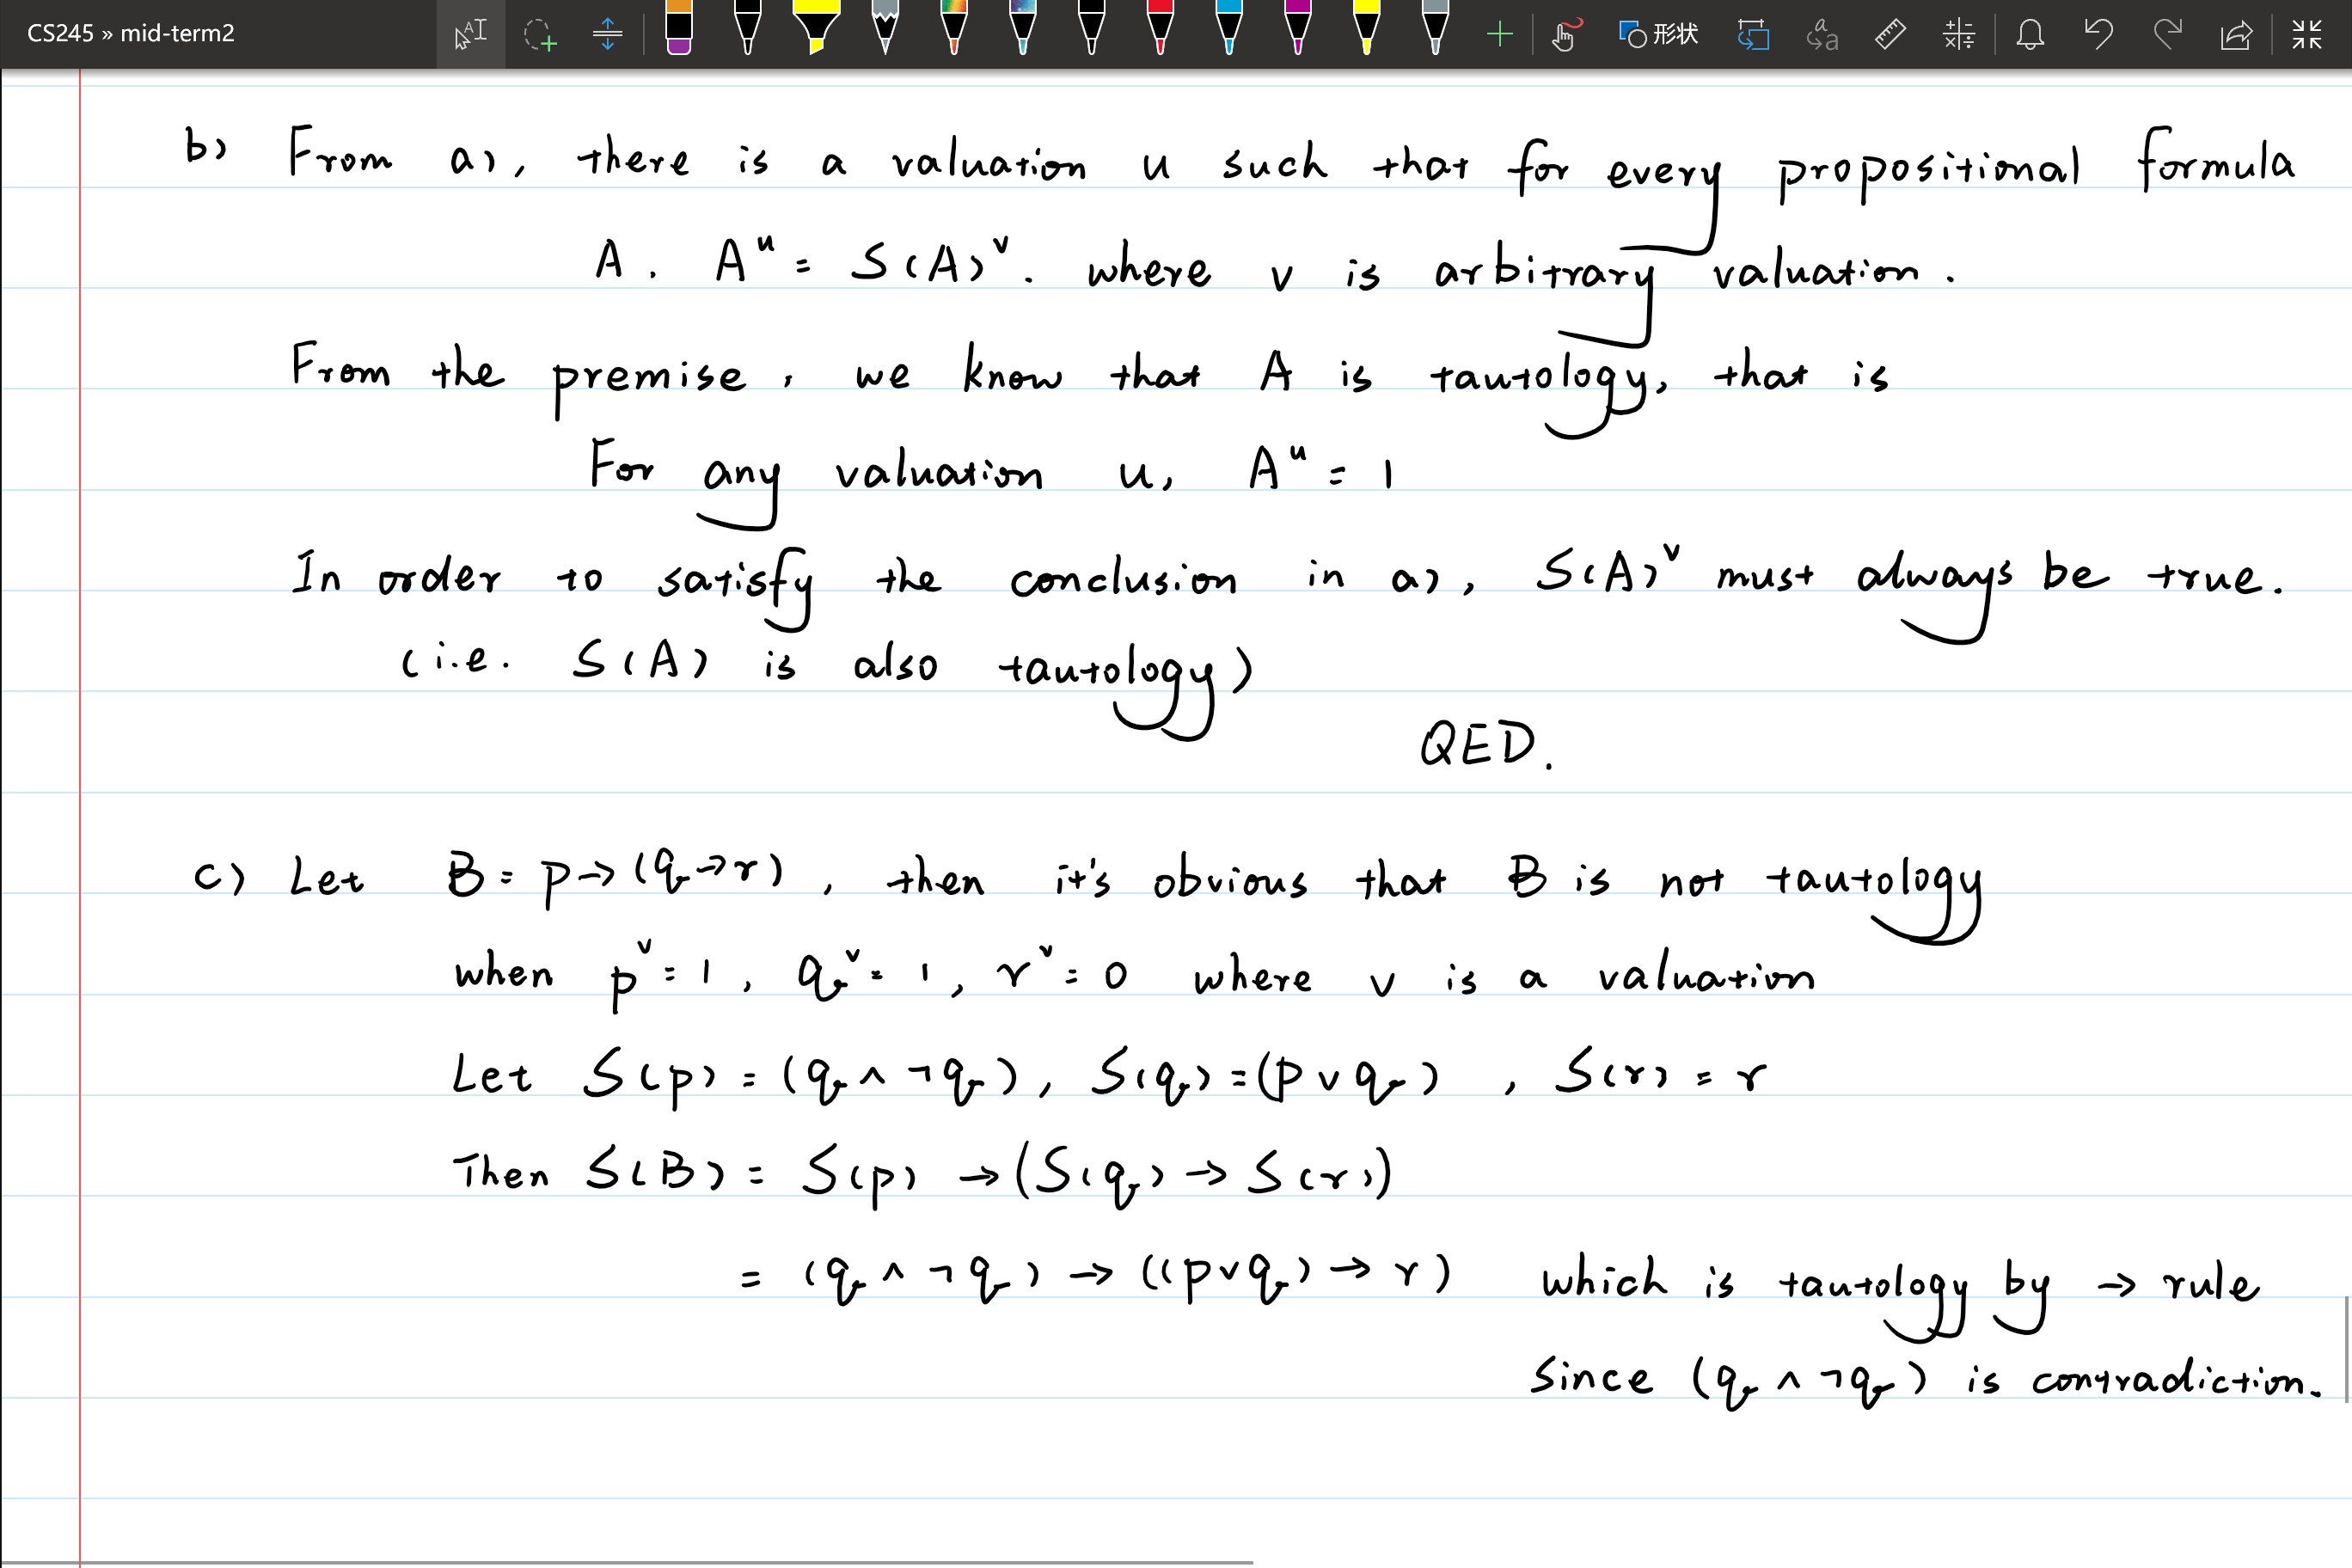 CS245 » mid-term2
形状
b) From a), there is a valuation u such that for every propositional formula
A. Aᵘ = S(A)ᵛ. where v is arbitrary valuation.
From the premise, we know that A is tautology, that is
For any valuation u, Aᵘ = 1
In order to satisfy the conclusion in a), S(A)ᵛ must always be true.
(i.e. S(A) is also tautology)
QED.
c) Let B = p → (q → r), then it's obvious that B is not tautology
when pᵛ = 1, qᵛ = 1, rᵛ = 0 where v is a valuation
Let S(p) = (q ∧ ¬q), S(q) = (p ∨ q), S(r) = r
Then S(B) = S(p) → (S(q) → S(r))
= (q ∧ ¬q) → ((p ∨ q) → r) which is tautology by → rule
since (q ∧ ¬q) is contradiction.